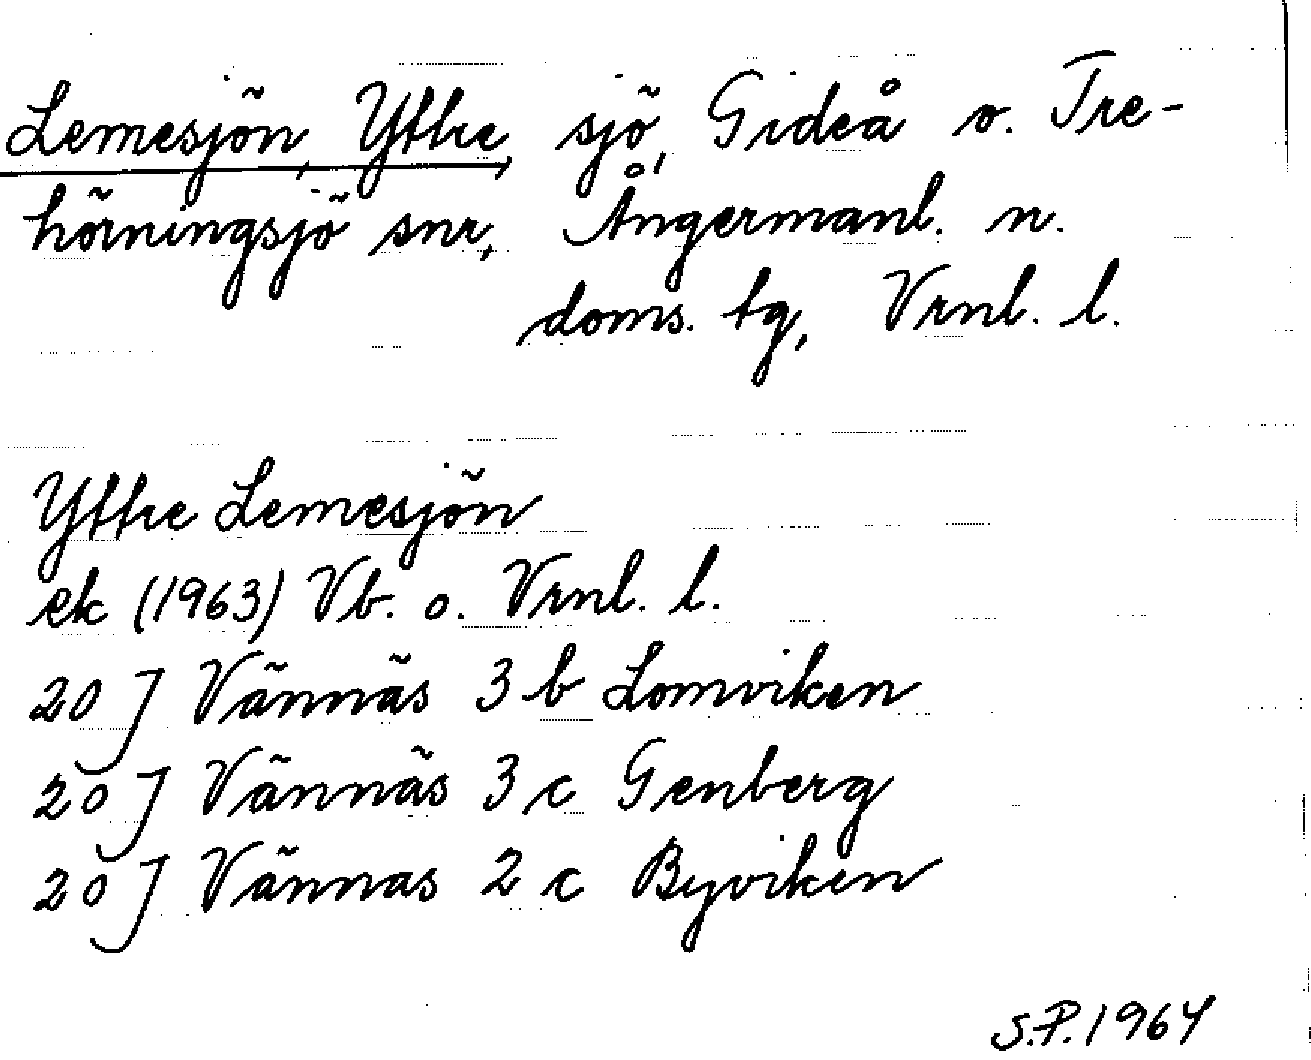 Lemesjön, Yttre, sjö, Gideå o. Tre-
hörningsjö snr, Ångermanl. n.
doms. tg, Vrnl. l.
Yttre Lemesjön
ek (1963) Vb. o. Vrnl. l.
20 J Vännäs 3 b Lomviken
20 J Vännäs 3 c Genberg
20 J Vännas 2 c Byviken
S.P. 1964